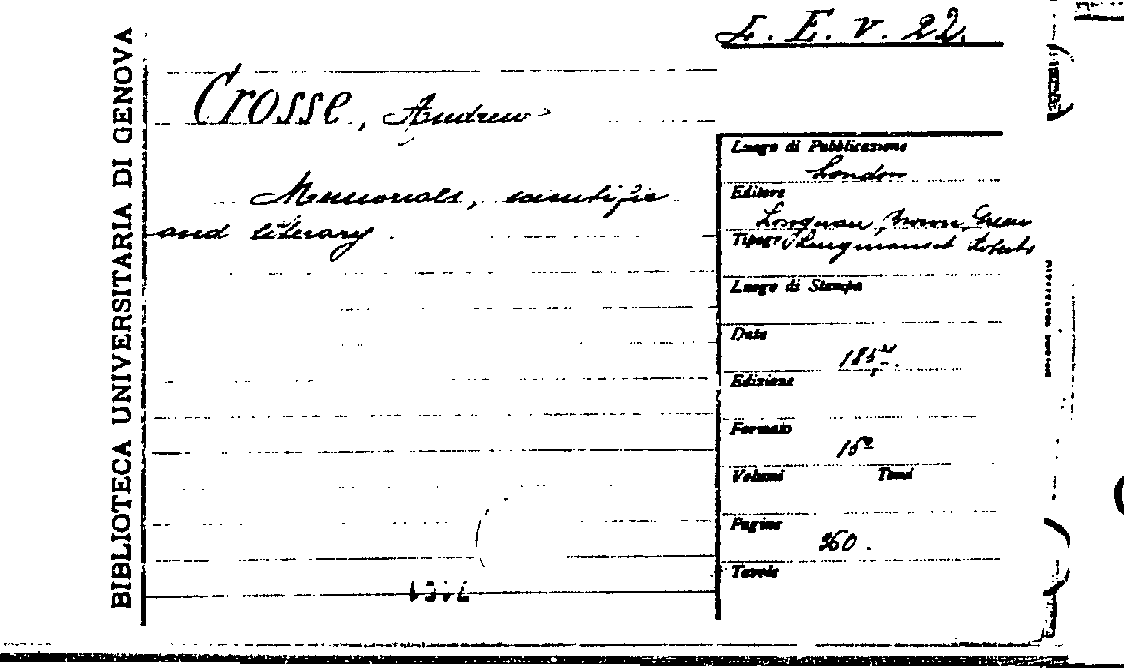 4. E. V. 22.
BIBLIOTECA UNIVERSITARIA DI GENOVA
Crosse, Andrew
Memorials, scientific
and literary.
Luogo di Pubblicazione
London
Editore
Longman, Brown, Green
Tipogr. Longmans et Roberts
Luogo di Stampa
Data
Edizione
Formato
Volumi Tomi
Pagine
360.
Tavole